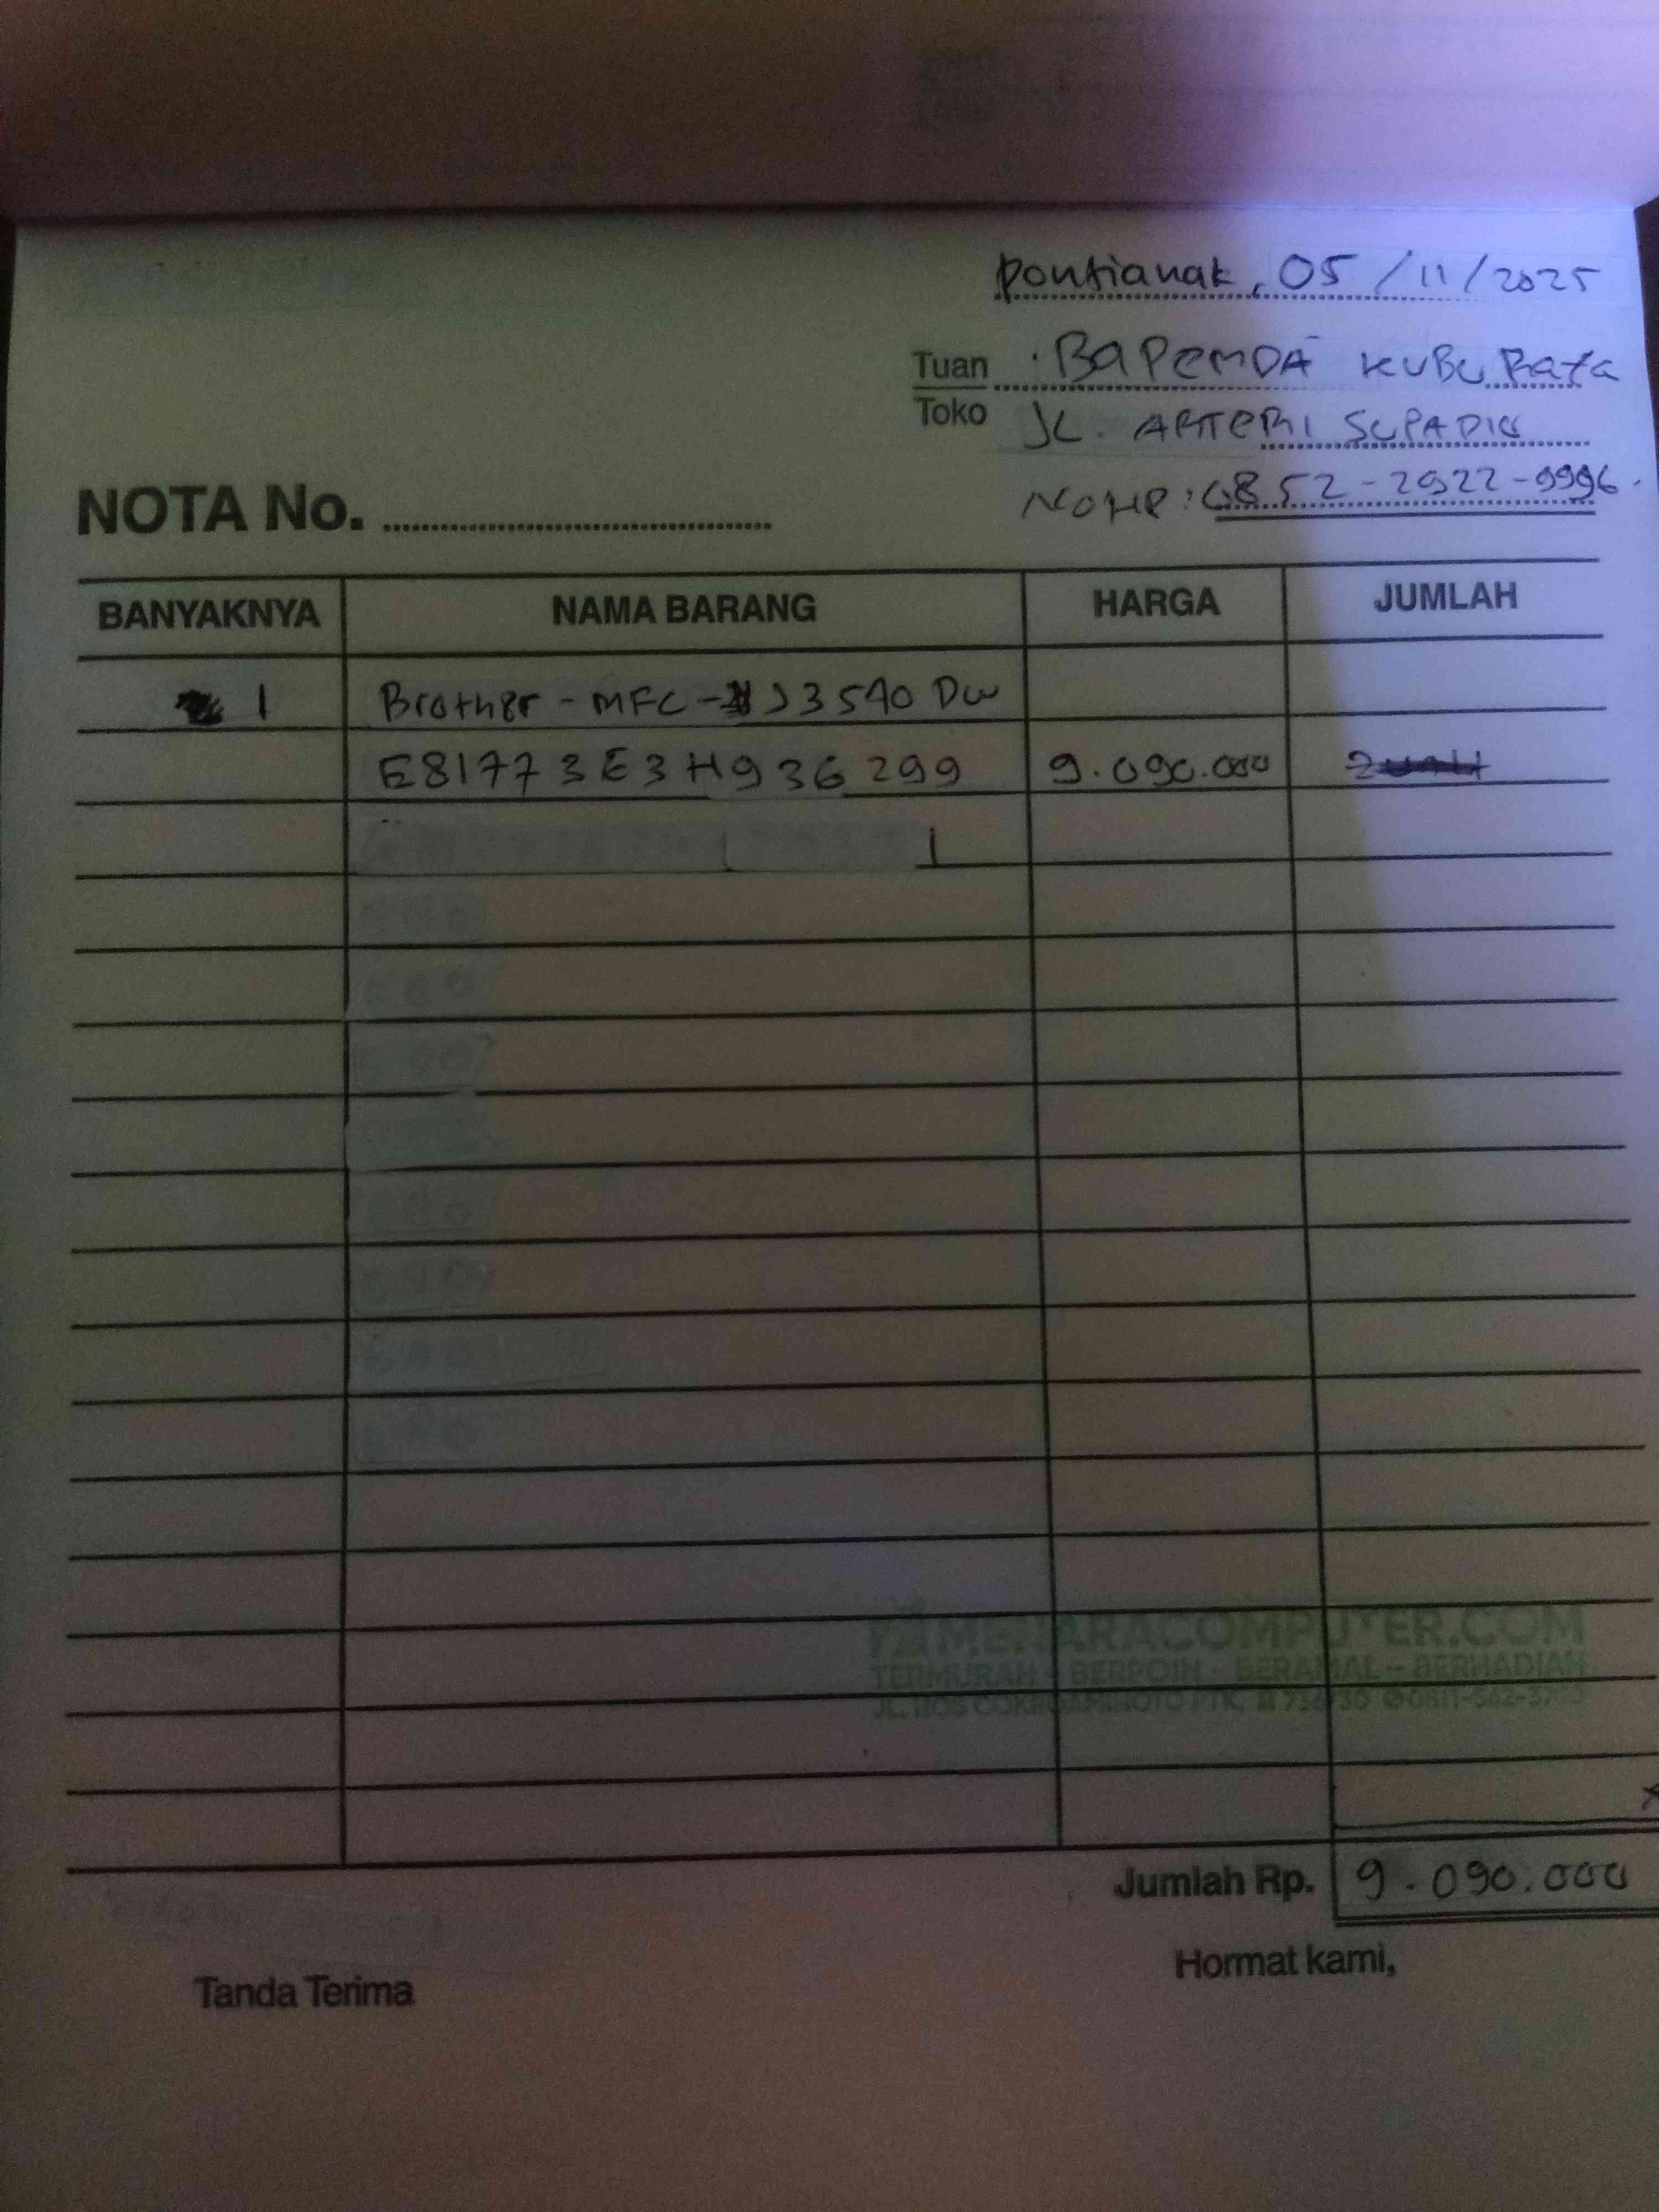 Pontianak, 05/11/2025
Tuan BAPENDA KUBU Raya
Toko JL. ARTERI SUPADIO
NO HP : 0852-2922-9996
NOTA No.
BANYAKNYA NAMA BARANG HARGA JUMLAH
1 Brother - MFC - J3540 DW
E81773E3H936299 9.090.000
MENARACOMPUTER.COM
TERMURAH - BERPOIN - BERAMAL - BERHADIAH
JL. HOS COKROAMINOTO PTK,
Jumlah Rp. 9.090.000
Tanda Terima
Hormat kami,